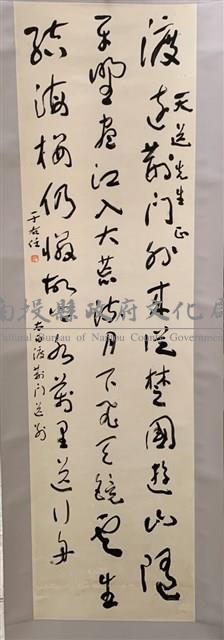 天送先生正
渡遠荊門外來從楚國遊山隨
平野盡江入大荒流月下飛天鏡雲生
結海樓仍憐故鄉水萬里送行舟
太白渡荊門送別
于右任
南投縣政府文化局
Cultural Affairs Bureau of Nantou County Government